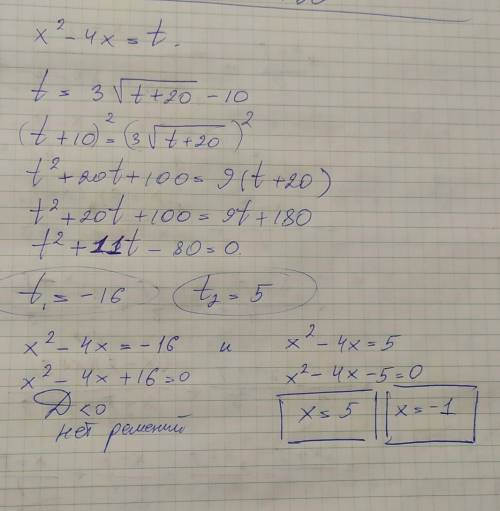 x² - 4x = t.
t = 3√(t+20) - 10
(t+10)² = (3√(t+20))²
t² + 20t + 100 = 9(t+20)
t² + 20t + 100 = 9t + 180
t² + 11t - 80 = 0.
t₁ = -16 t₂ = 5
x² - 4x = -16 и x² - 4x = 5
x² - 4x + 16 = 0 x² - 4x - 5 = 0
D < 0 x = 5 x = -1
нет решений